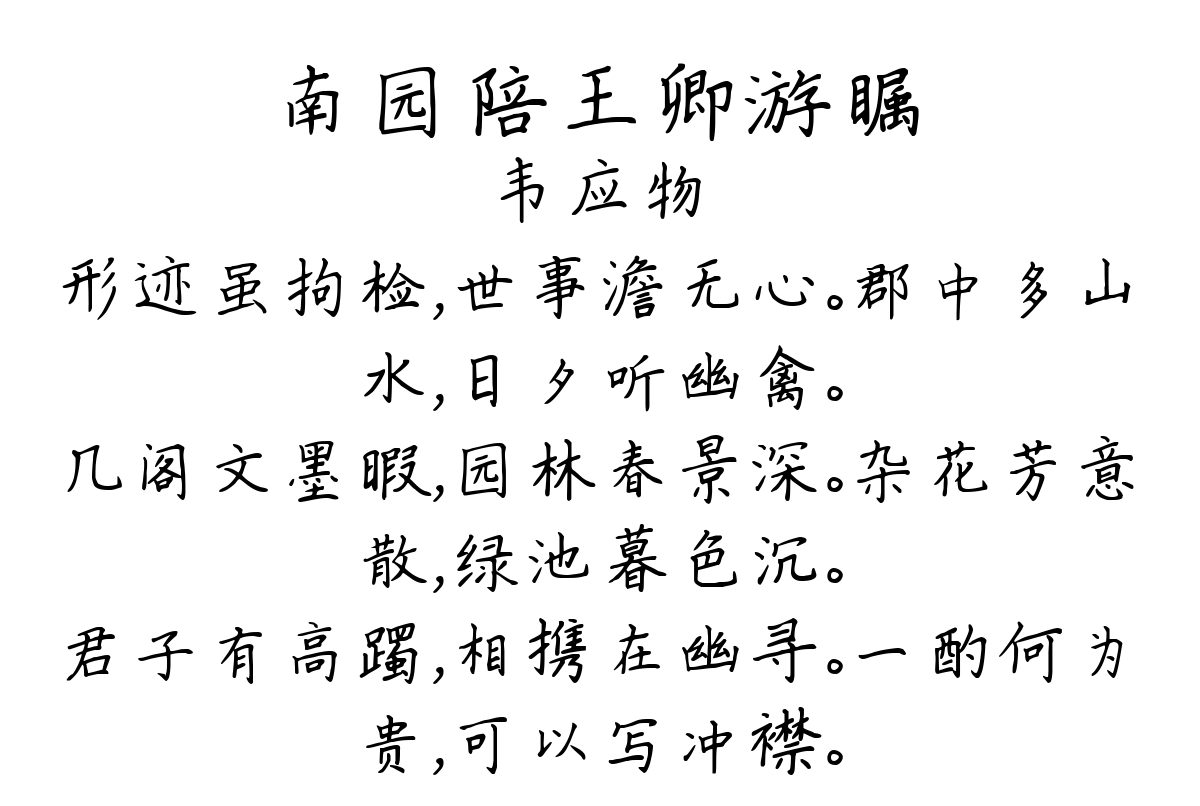 南园陪王卿游瞩
韦应物
形迹虽拘检,世事澹无心。郡中多山
水,日夕听幽禽。
几阁文墨暇,园林春景深。杂花芳意
散,绿池暮色沉。
君子有高躅,相携在幽寻。一酌何为
贵,可以写冲襟。